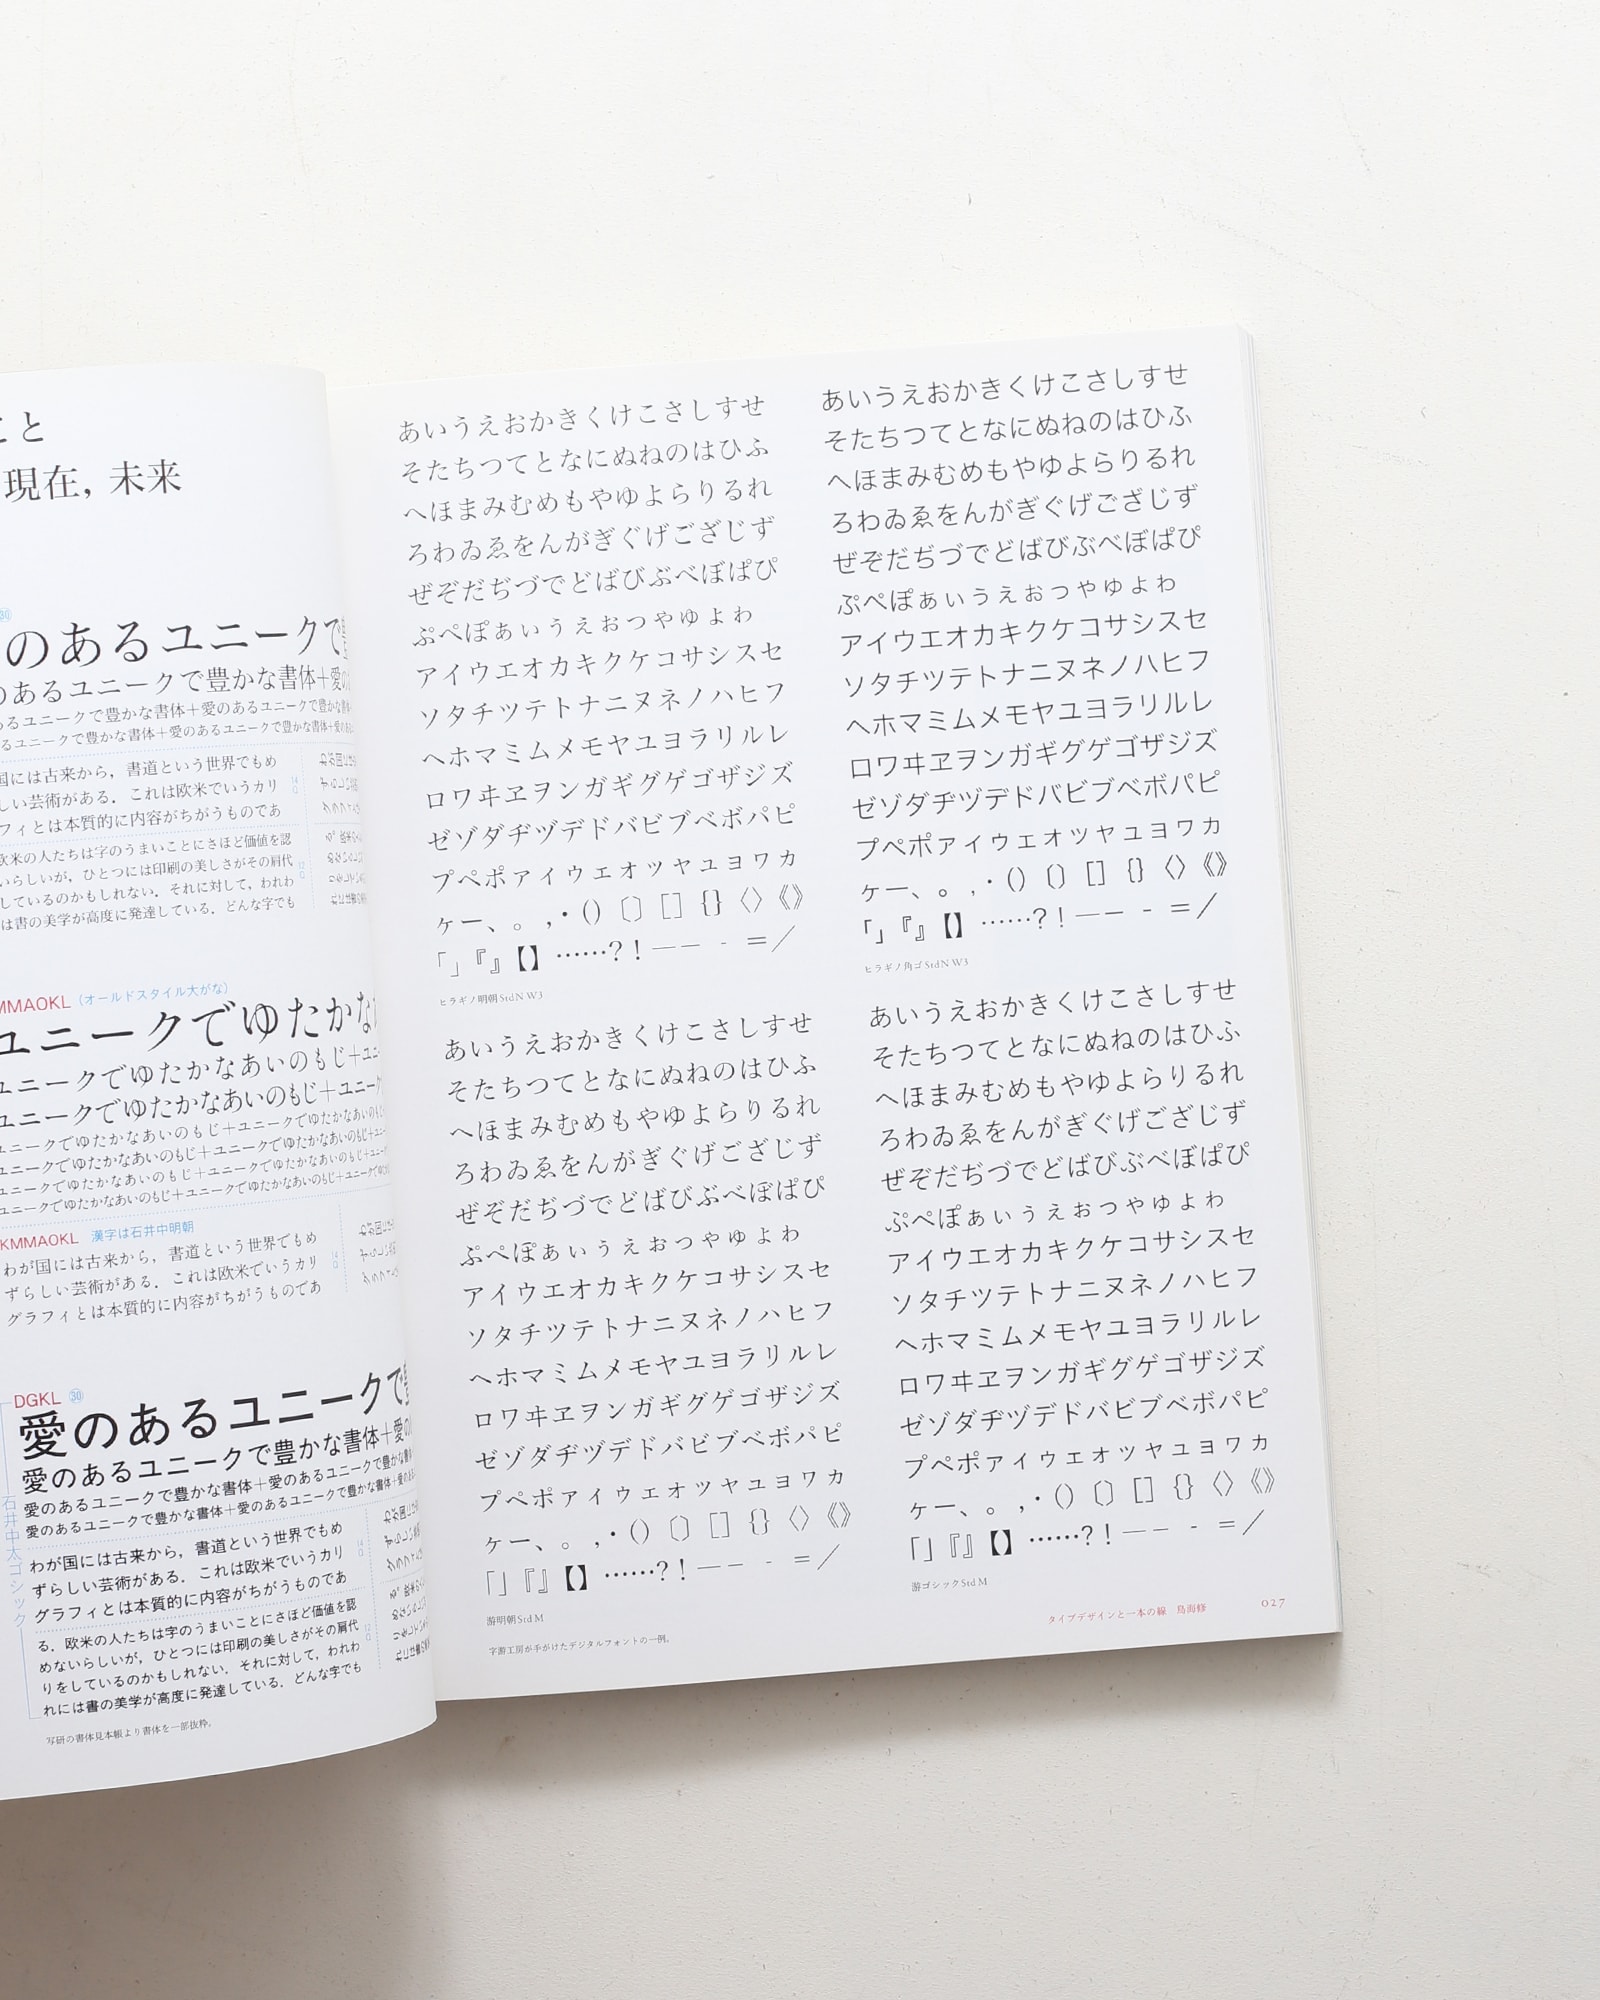 こと
現在，未来
のあるユニークで
のあるユニークで豊かな書体＋愛の
あるユニークで豊かな書体＋愛のあるユニークで豊かな書体
るユニークで豊かな書体＋愛のあるユニークで豊かな書体＋愛のある
国には古来から，書道という世界でもめ
しい芸術がある．これは欧米でいうカリ
フィとは本質的に内容がちがうものであ
欧米の人たちは字のうまいことにさほど価値を認
いらしいが，ひとつには印刷の美しさがその肩代
しているのかもしれない．それに対して，われわ
は書の美学が高度に発達している．どんな字でも
MMAOKL（オールドスタイル大がな）
ユニークでゆたかな
ユニークでゆたかなあいのもじ＋ユニ
ユニークでゆたかなあいのもじ＋ユニーク
ユニークでゆたかなあいのもじ＋ユニークでゆたかなあいのも
ユニークでゆたかなあいのもじ＋ユニークでゆたかなあいのもじ＋ユニ
ユニークでゆたかなあいのもじ＋ユニークでゆたかなあいのもじ＋ユニ
ユニークでゆたかなあいのもじ＋ユニークでゆたかなあいのもじ＋ユニークでゆた
KMMAOKL 漢字は石井中明朝
わが国には古来から，書道という世界でもめ
ずらしい芸術がある．これは欧米でいうカリ
グラフィとは本質的に内容がちがうものであ
DGKL ㉚
石井中太ゴシック
愛のあるユニークで
愛のあるユニークで豊かな書体＋愛の
愛のあるユニークで豊かな書体＋愛のあるユニークで豊かな
愛のあるユニークで豊かな書体＋愛のあるユニークで豊かな書体＋愛のある
わが国には古来から，書道という世界でもめ
ずらしい芸術がある．これは欧米でいうカリ
グラフィとは本質的に内容がちがうものであ
る．欧米の人たちは字のうまいことにさほど価値を認
めないらしいが，ひとつには印刷の美しさがその肩代
りをしているのかもしれない．それに対して，われわ
れには書の美学が高度に発達している．どんな字でも
写研の書体見本帳より書体を一部抜粋。
あいうえおかきくけこさしすせ
そたちつてとなにぬねのはひふ
へほまみむめもやゆよらりるれ
ろわゐゑをんがぎぐげござじず
ぜぞだぢづでどばびぶべぼぱぴ
ぷぺぽぁぃぅぇぉっゃゅょゎ
アイウエオカキクケコサシスセ
ソタチツテトナニヌネノハヒフ
ヘホマミムメモヤユヨラリルレ
ロワヰヱヲンガギグゲゴザジズ
ゼゾダヂヅデドバビブベボパピ
プペポァィゥェォッャュョヮヵ
ヶー、。，・（）〔〕［］｛｝〈〉《》
「」『』【】……？！―－‐＝／
ヒラギノ明朝StdN W3
あいうえおかきくけこさしすせ
そたちつてとなにぬねのはひふ
へほまみむめもやゆよらりるれ
ろわゐゑをんがぎぐげござじず
ぜぞだぢづでどばびぶべぼぱぴ
ぷぺぽぁぃぅぇぉっゃゅょゎ
アイウエオカキクケコサシスセ
ソタチツテトナニヌネノハヒフ
ヘホマミムメモヤユヨラリルレ
ロワヰヱヲンガギグゲゴザジズ
ゼゾダヂヅデドバビブベボパピ
プペポァィゥェォッャュョヮヵ
ヶー、。，・（）〔〕［］｛｝〈〉《》
「」『』【】……？！―－‐＝／
游明朝Std M
字游工房が手がけたデジタルフォントの一例。
あいうえおかきくけこさしすせ
そたちつてとなにぬねのはひふ
へほまみむめもやゆよらりるれ
ろわゐゑをんがぎぐげござじず
ぜぞだぢづでどばびぶべぼぱぴ
ぷぺぽぁぃぅぇぉっゃゅょゎ
アイウエオカキクケコサシスセ
ソタチツテトナニヌネノハヒフ
ヘホマミムメモヤユヨラリルレ
ロワヰヱヲンガギグゲゴザジズ
ゼゾダヂヅデドバビブベボパピ
プペポァィゥェォッャュョヮヵ
ヶー、。，・（）〔〕［］｛｝〈〉《》
「」『』【】……？！―－‐＝／
ヒラギノ角ゴStdN W3
あいうえおかきくけこさしすせ
そたちつてとなにぬねのはひふ
へほまみむめもやゆよらりるれ
ろわゐゑをんがぎぐげござじず
ぜぞだぢづでどばびぶべぼぱぴ
ぷぺぽぁぃぅぇぉっゃゅょゎ
アイウエオカキクケコサシスセ
ソタチツテトナニヌネノハヒフ
ヘホマミムメモヤユヨラリルレ
ロワヰヱヲンガギグゲゴザジズ
ゼゾダヂヅデドバビブベボパピ
プペポァィゥェォッャュョヮヵ
ヶー、。，・（）〔〕［］｛｝〈〉《》
「」『』【】……？！―－‐＝／
游ゴシックStd M
タイプデザインと一本の線　鳥海修 027